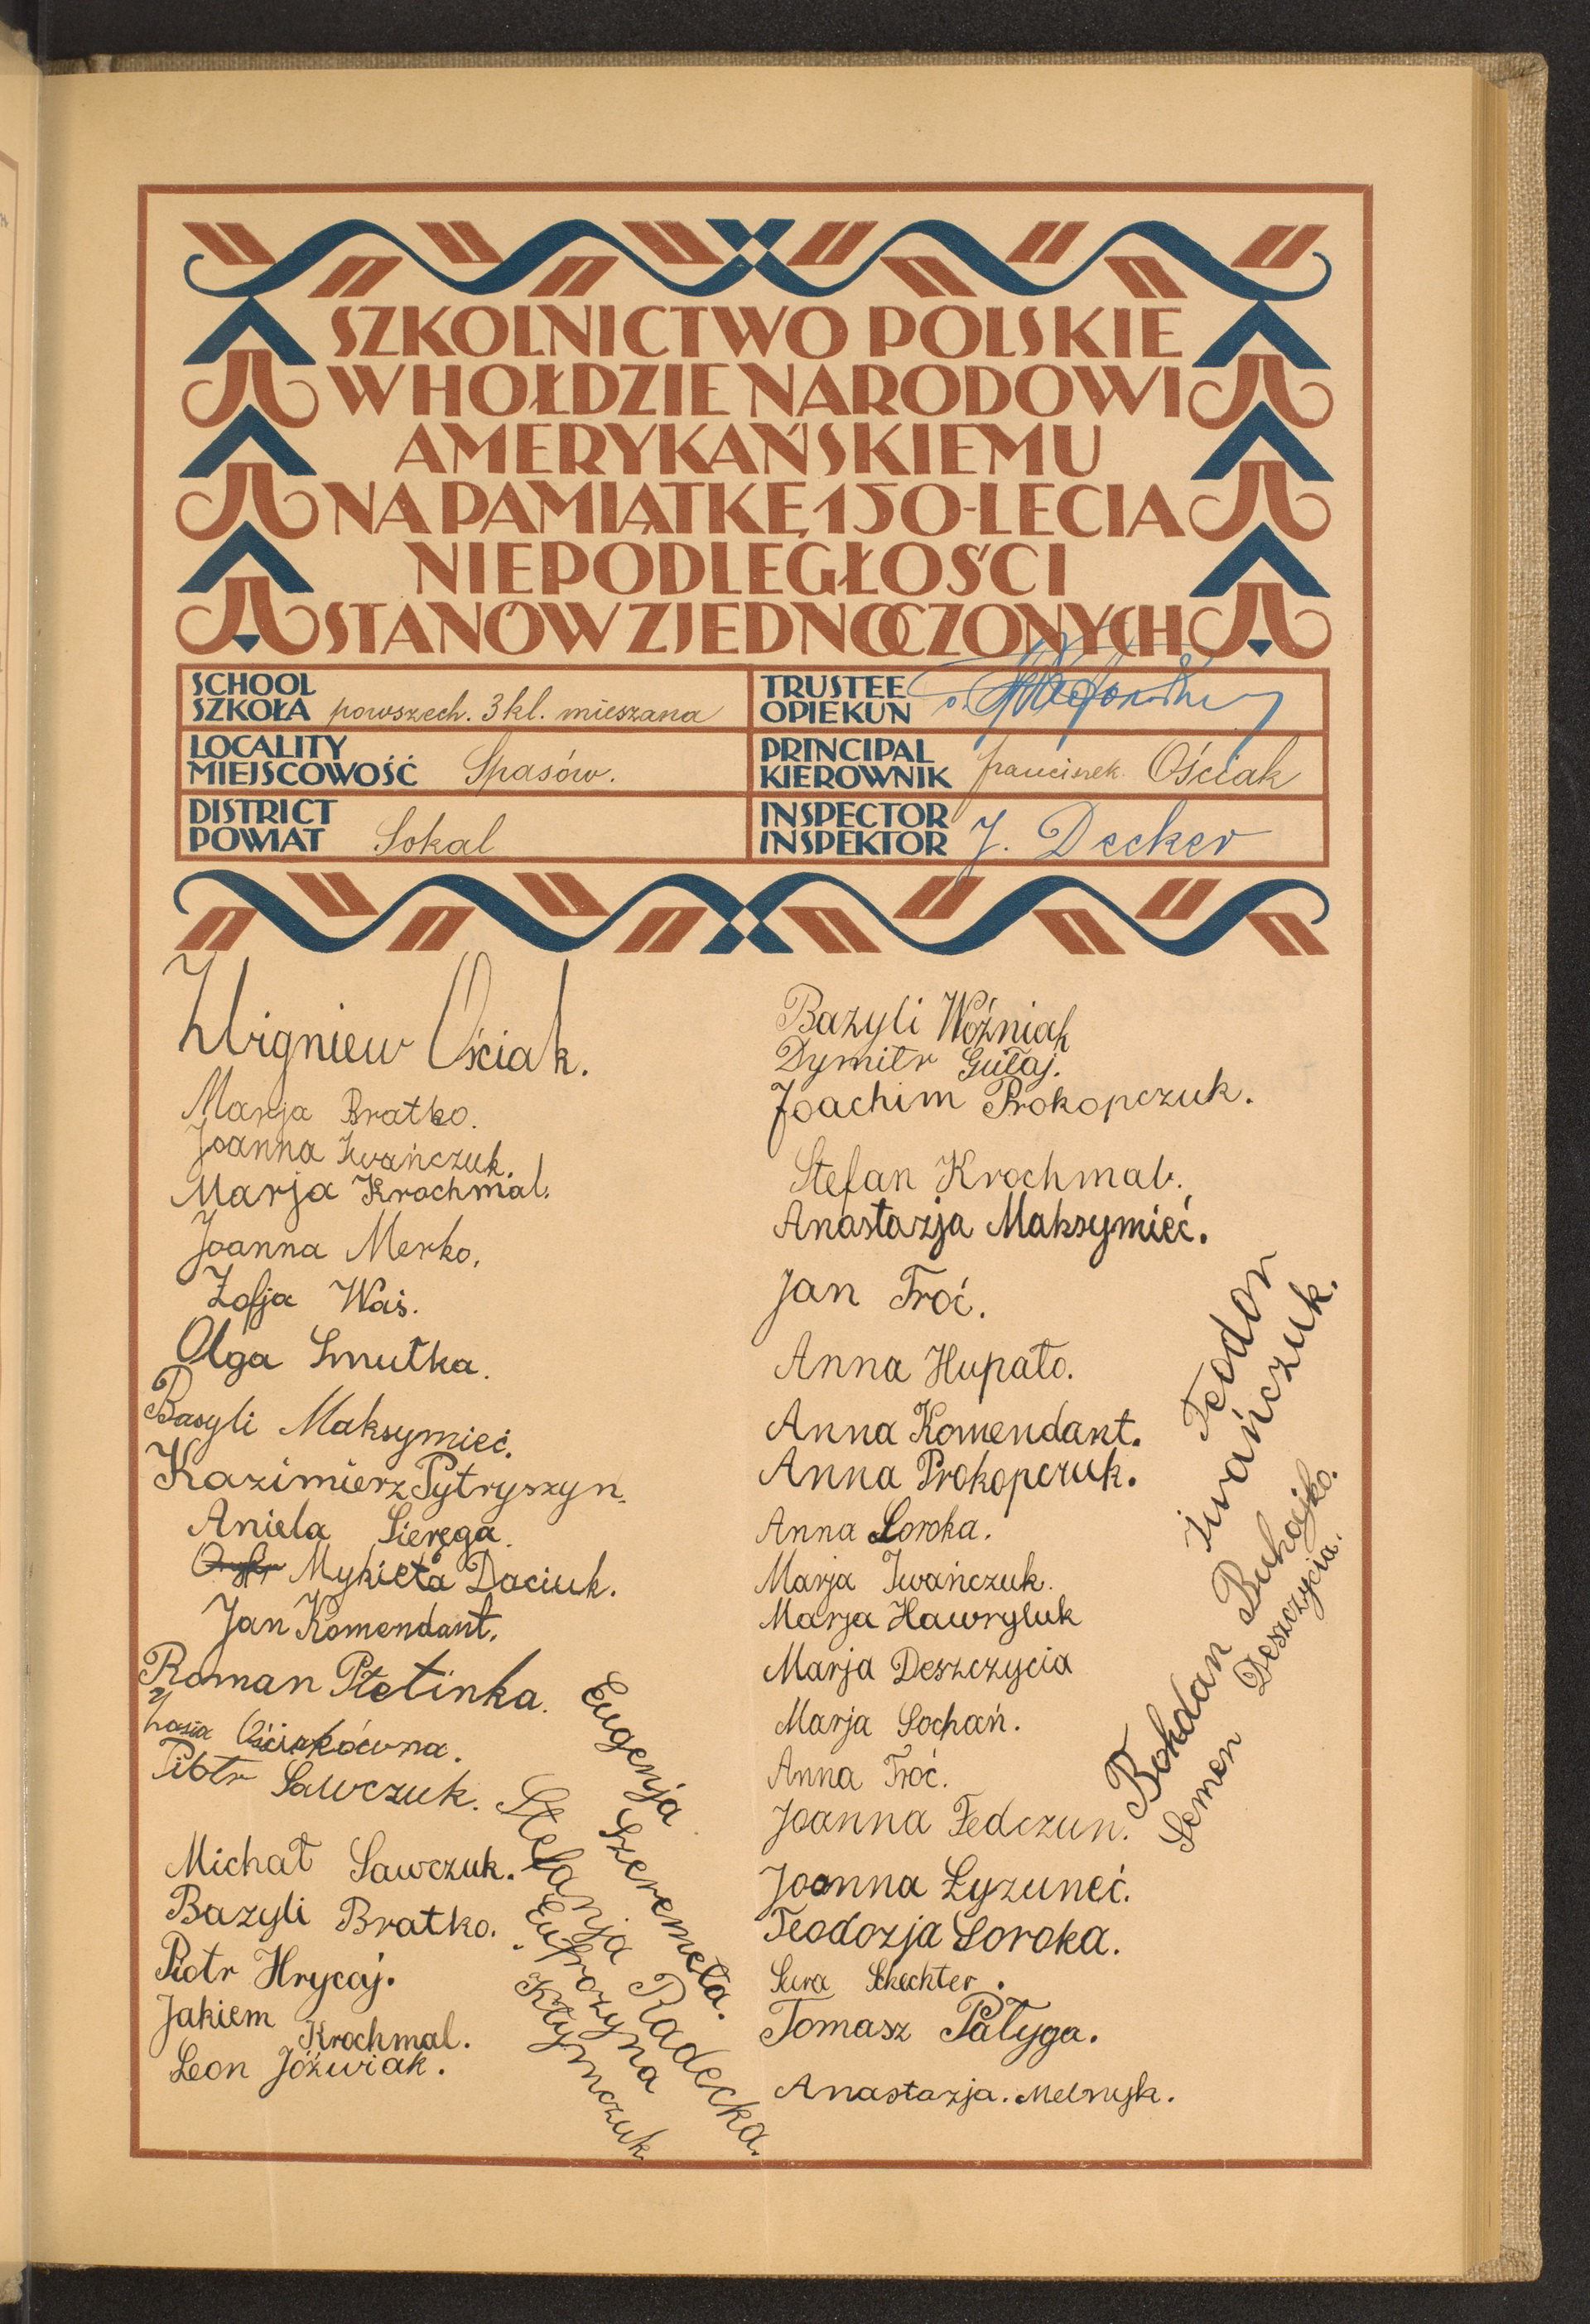 SZKOLNICTWO POLSKIE
W HOŁDZIE NARODOWI
AMERYKAŃSKIEMU
NA PAMIĄTKĘ 150-LECIA
NIEPODLEGŁOŚCI
STANÓW ZJEDNOCZONYCH
SCHOOL
SZKOŁA powszech. 3 kl. mieszana
TRUSTEE
OPIEKUN
LOCALITY
MIEJSCOWOŚĆ Spasów.
PRINCIPAL
KIEROWNIK Franciszek Ościak
DISTRICT
POWIAT Sokal
INSPECTOR
INSPEKTOR J. Decker
Zbigniew Ościak.
Marja Bratko.
Joanna Iwańczuk.
Marja Krochmal.
Joanna Merko.
Zofja Waś.
Olga Smutka.
Basyli Maksymieć.
Kazimierz Pytryszyn.
Aniela Sieręga.
Mykieta Daciuk.
Jan Komendant.
Roman Ptetinka.
Ościakówna.
Piotr Sawczuk.
Michał Sawczuk.
Bazyli Bratko.
Piotr Hrycaj.
Jakiem Krochmal.
Leon Jóźwiak.
Eugenja Szeremeta.
Stefanja Radecka.
Eufrozyna
Kłymczuk
Bazyli Woźniak
Dymitr Gułaj.
Joachim Prokopczuk.
Stefan Krochmal.
Anastazja Maksymieć.
Jan Troć.
Anna Hupało.
Anna Komendant.
Anna Prokopczuk.
Anna Soroka.
Marja Iwańczuk.
Marja Hawryluk
Marja Deszczycia
Marja Sochań.
Anna Troć.
Joanna Fedczun.
Joanna Łyzuneć.
Teodozja Soroka.
Sura Schechter.
Tomasz Pałyga.
Anastazja. Melnyk.
Teodor
Iwańczuk.
Bohdan Buhajko.
Semen Deszczycia.